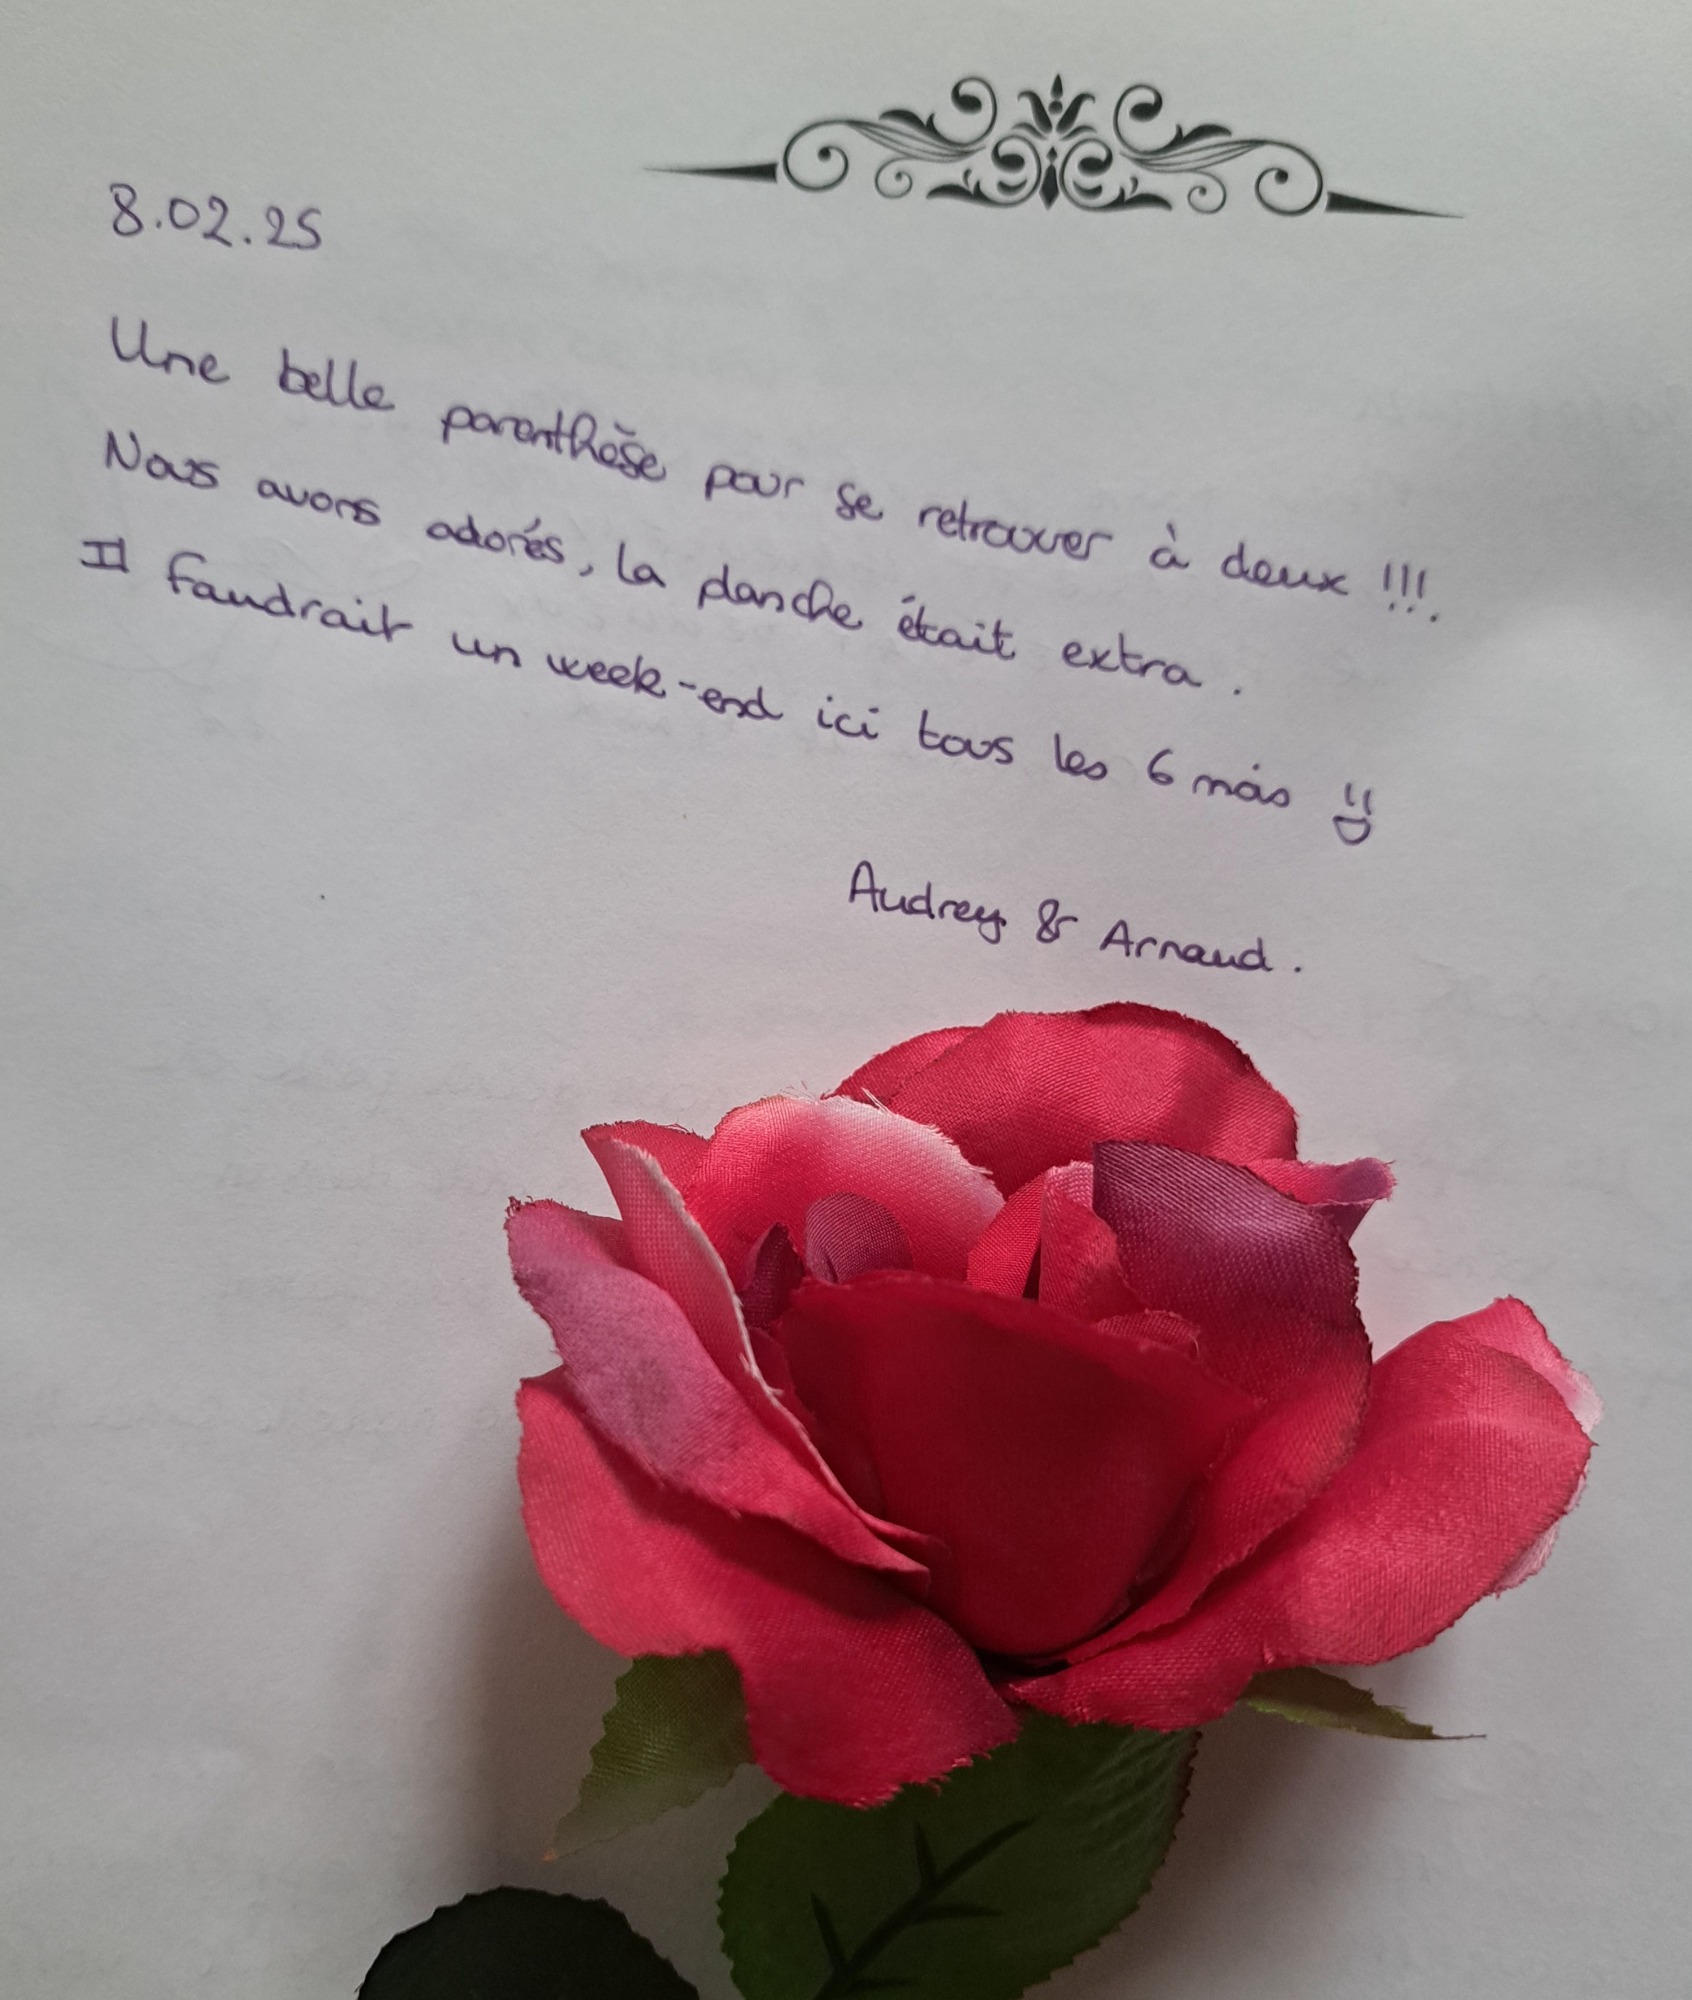 8.02.25
Une belle parenthèse pour se retrouver à deux !!!.
Nous avons adorés, la planche était extra.
Il faudrait un week-end ici tous les 6 mois
Audrey & Arnaud.